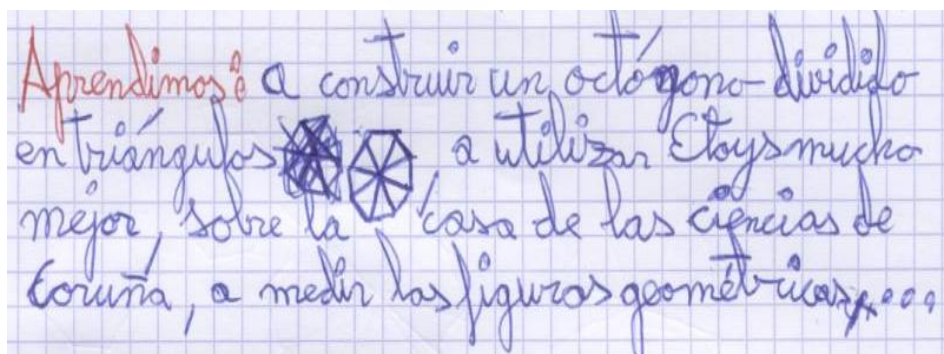 Aprendimos: a construir un octógono dividido
en triángulos, a utilizar Etoys mucho
mejor, sobre la casa de las ciencias de
Coruña, a medir las figuras geométricas,...